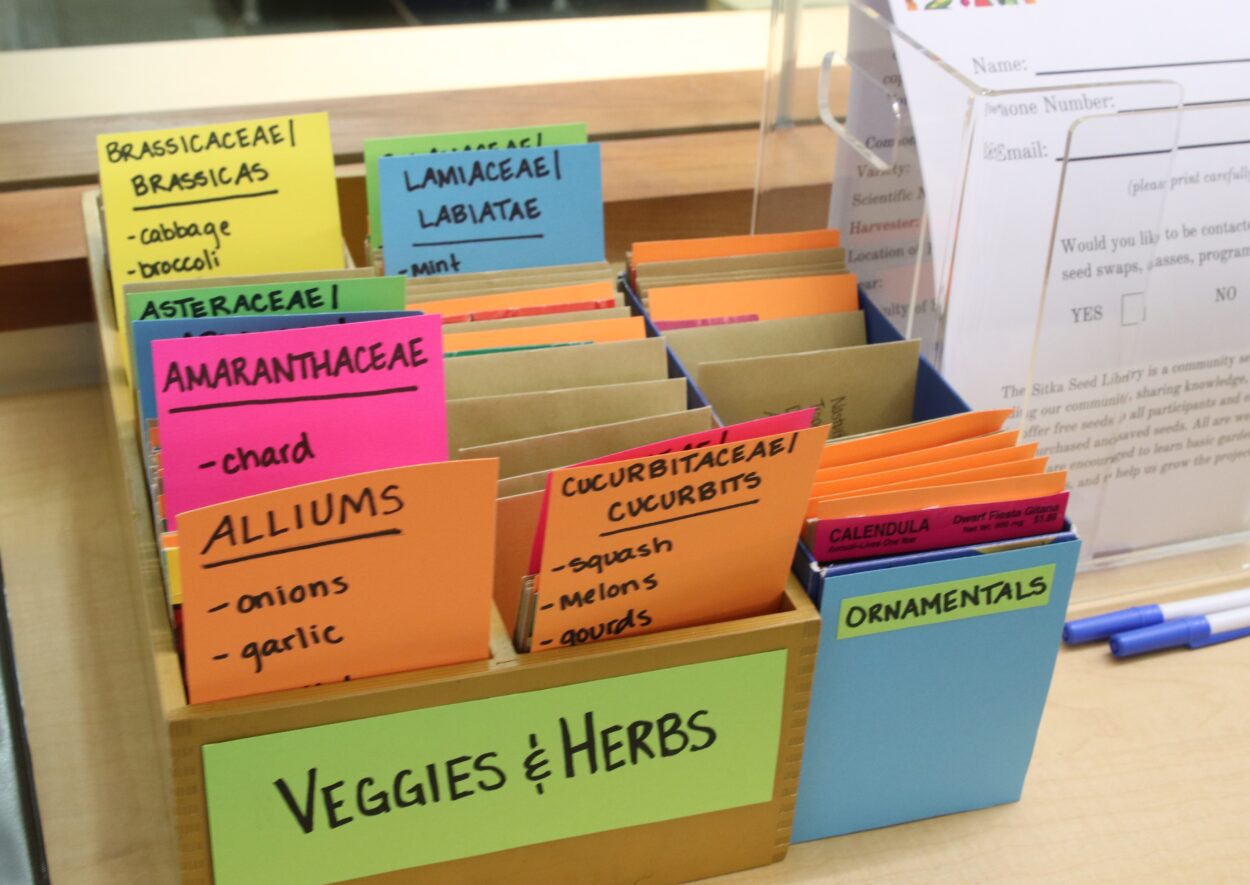 BRASSICACEAE/
BRASSICAS
-cabbage
-broccoli
LAMIACEAE/
LABIATAE
-Mint
ASTERACEAE/
AMARANTHACEAE
-chard
ALLIUMS
-onions
-garlic
CUCURBITACEAE/
CUCURBITS
-squash
-Melons
-gourds
VEGGIES & HERBS
CALENDULA
Dwarf Fiesta Gitana
Annual-Lives One Year
Net Wt. 800 mg $1.89
ORNAMENTALS
Name:
Number:
Email:
(please print carefully
Would you like to be contacte
seed swaps, classes, program
YES
NO
The Sitka Seed Library is a community se
our community sharing knowledge,
offer free seeds all participants and
and saved seeds. All are
are encouraged to learn basic garde
help us grow the project
Variety:
Scientific
Harvester:
Location of